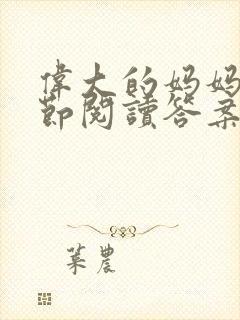 偉大的媽媽
節閱讀答案
葉農